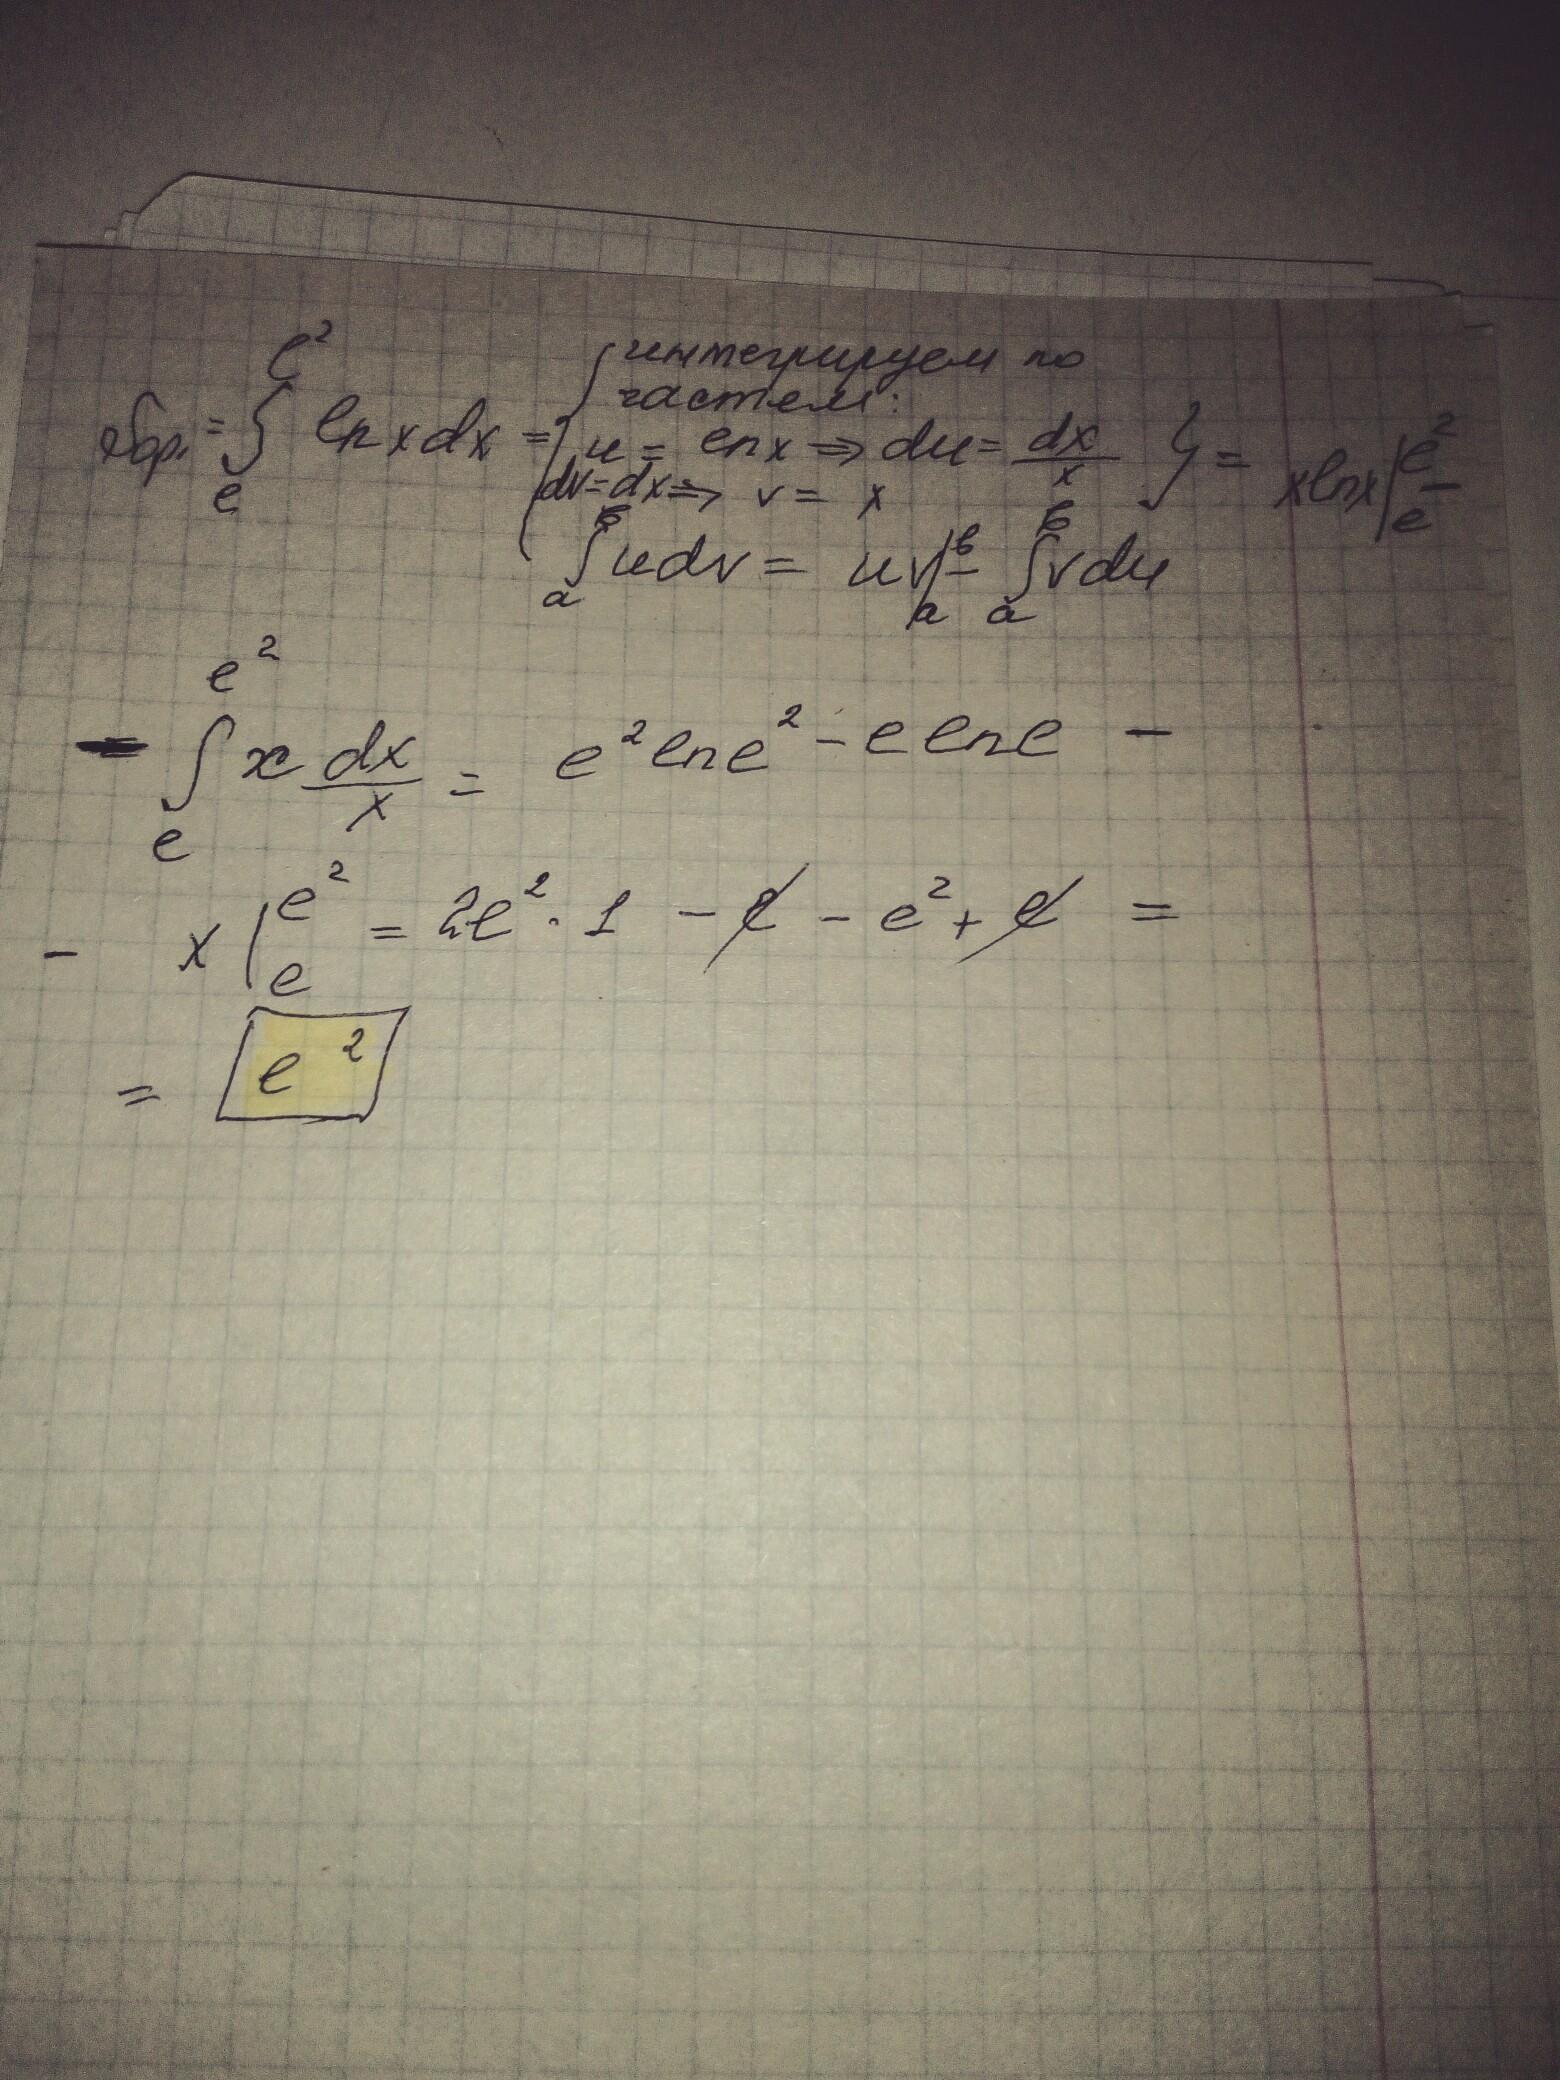 = ∫ₑ^(e²) ln x dx = { интегрируем по
частям:
u = ln x ⇒ du = dx/x
dv = dx ⇒ v = x } = x ln x |ₑ^(e²) −
∫ₐᵇ u dv = uv |ₐᵇ − ∫ₐᵇ v du
− ∫ₑ^(e²) x dx/x = e² ln e² − e ln e −
− x |ₑ^(e²) = 2e² · 1 − e − e² + e =
= e²